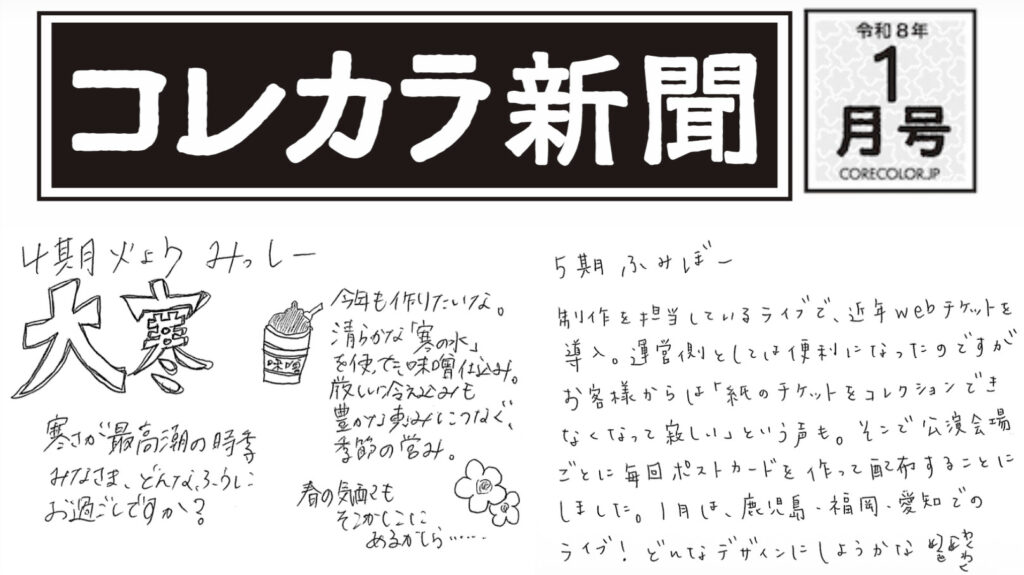 コレカラ新聞
令和8年
1
月号
CORECOLOR.JP
4期火より みっしー
大寒
寒さが最高潮の時季
みなさま、どんなふうに
お過ごしですか？
味噌
今年も作りたいな。
清らかな「寒の水」
を使った味噌仕込み。
厳しい冷え込みも
豊かな恵みにつなぐ、
季節の営み。
春の気配も
そこかしこに
あるかしら……
5期 ふみぼー
制作を担当しているライブで、近年webチケットを
導入。運営側としては便利になったのですが
お客様からは「紙のチケットをコレクションでき
なくなって寂しい」という声も。そこで公演会場
ごとに毎回ポストカードを作って配布することに
しました。1月は、鹿児島・福岡・愛知での
ライブ！ どんなデザインにしようかな
わくわく